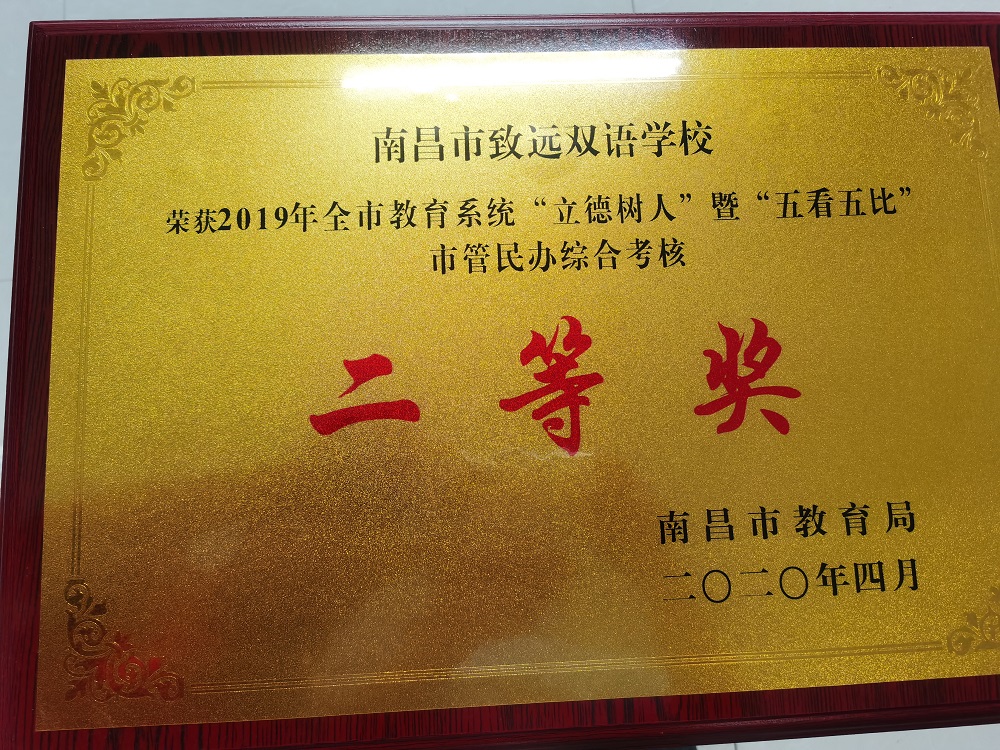 南昌市致远双语学校
荣获2019年全市教育系统“立德树人”暨“五看五比”
市管民办综合考核
二等奖
南昌市教育局
二〇二〇年四月